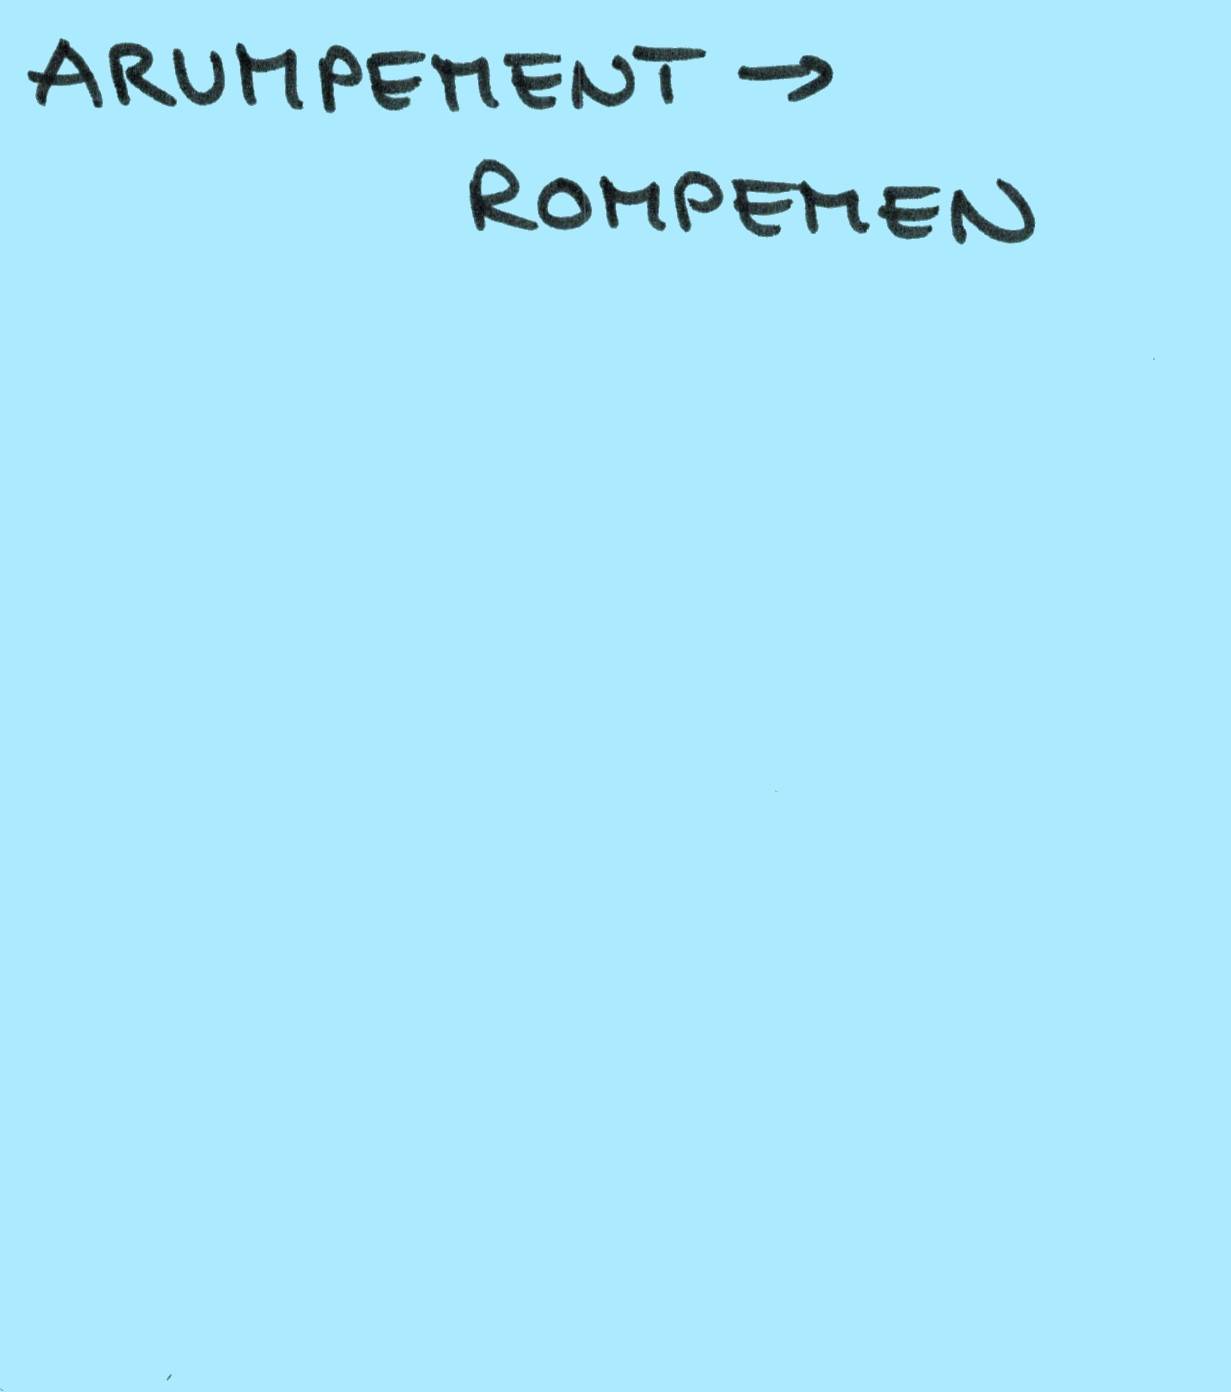 ARUMPEMENT →
ROMPEMEN